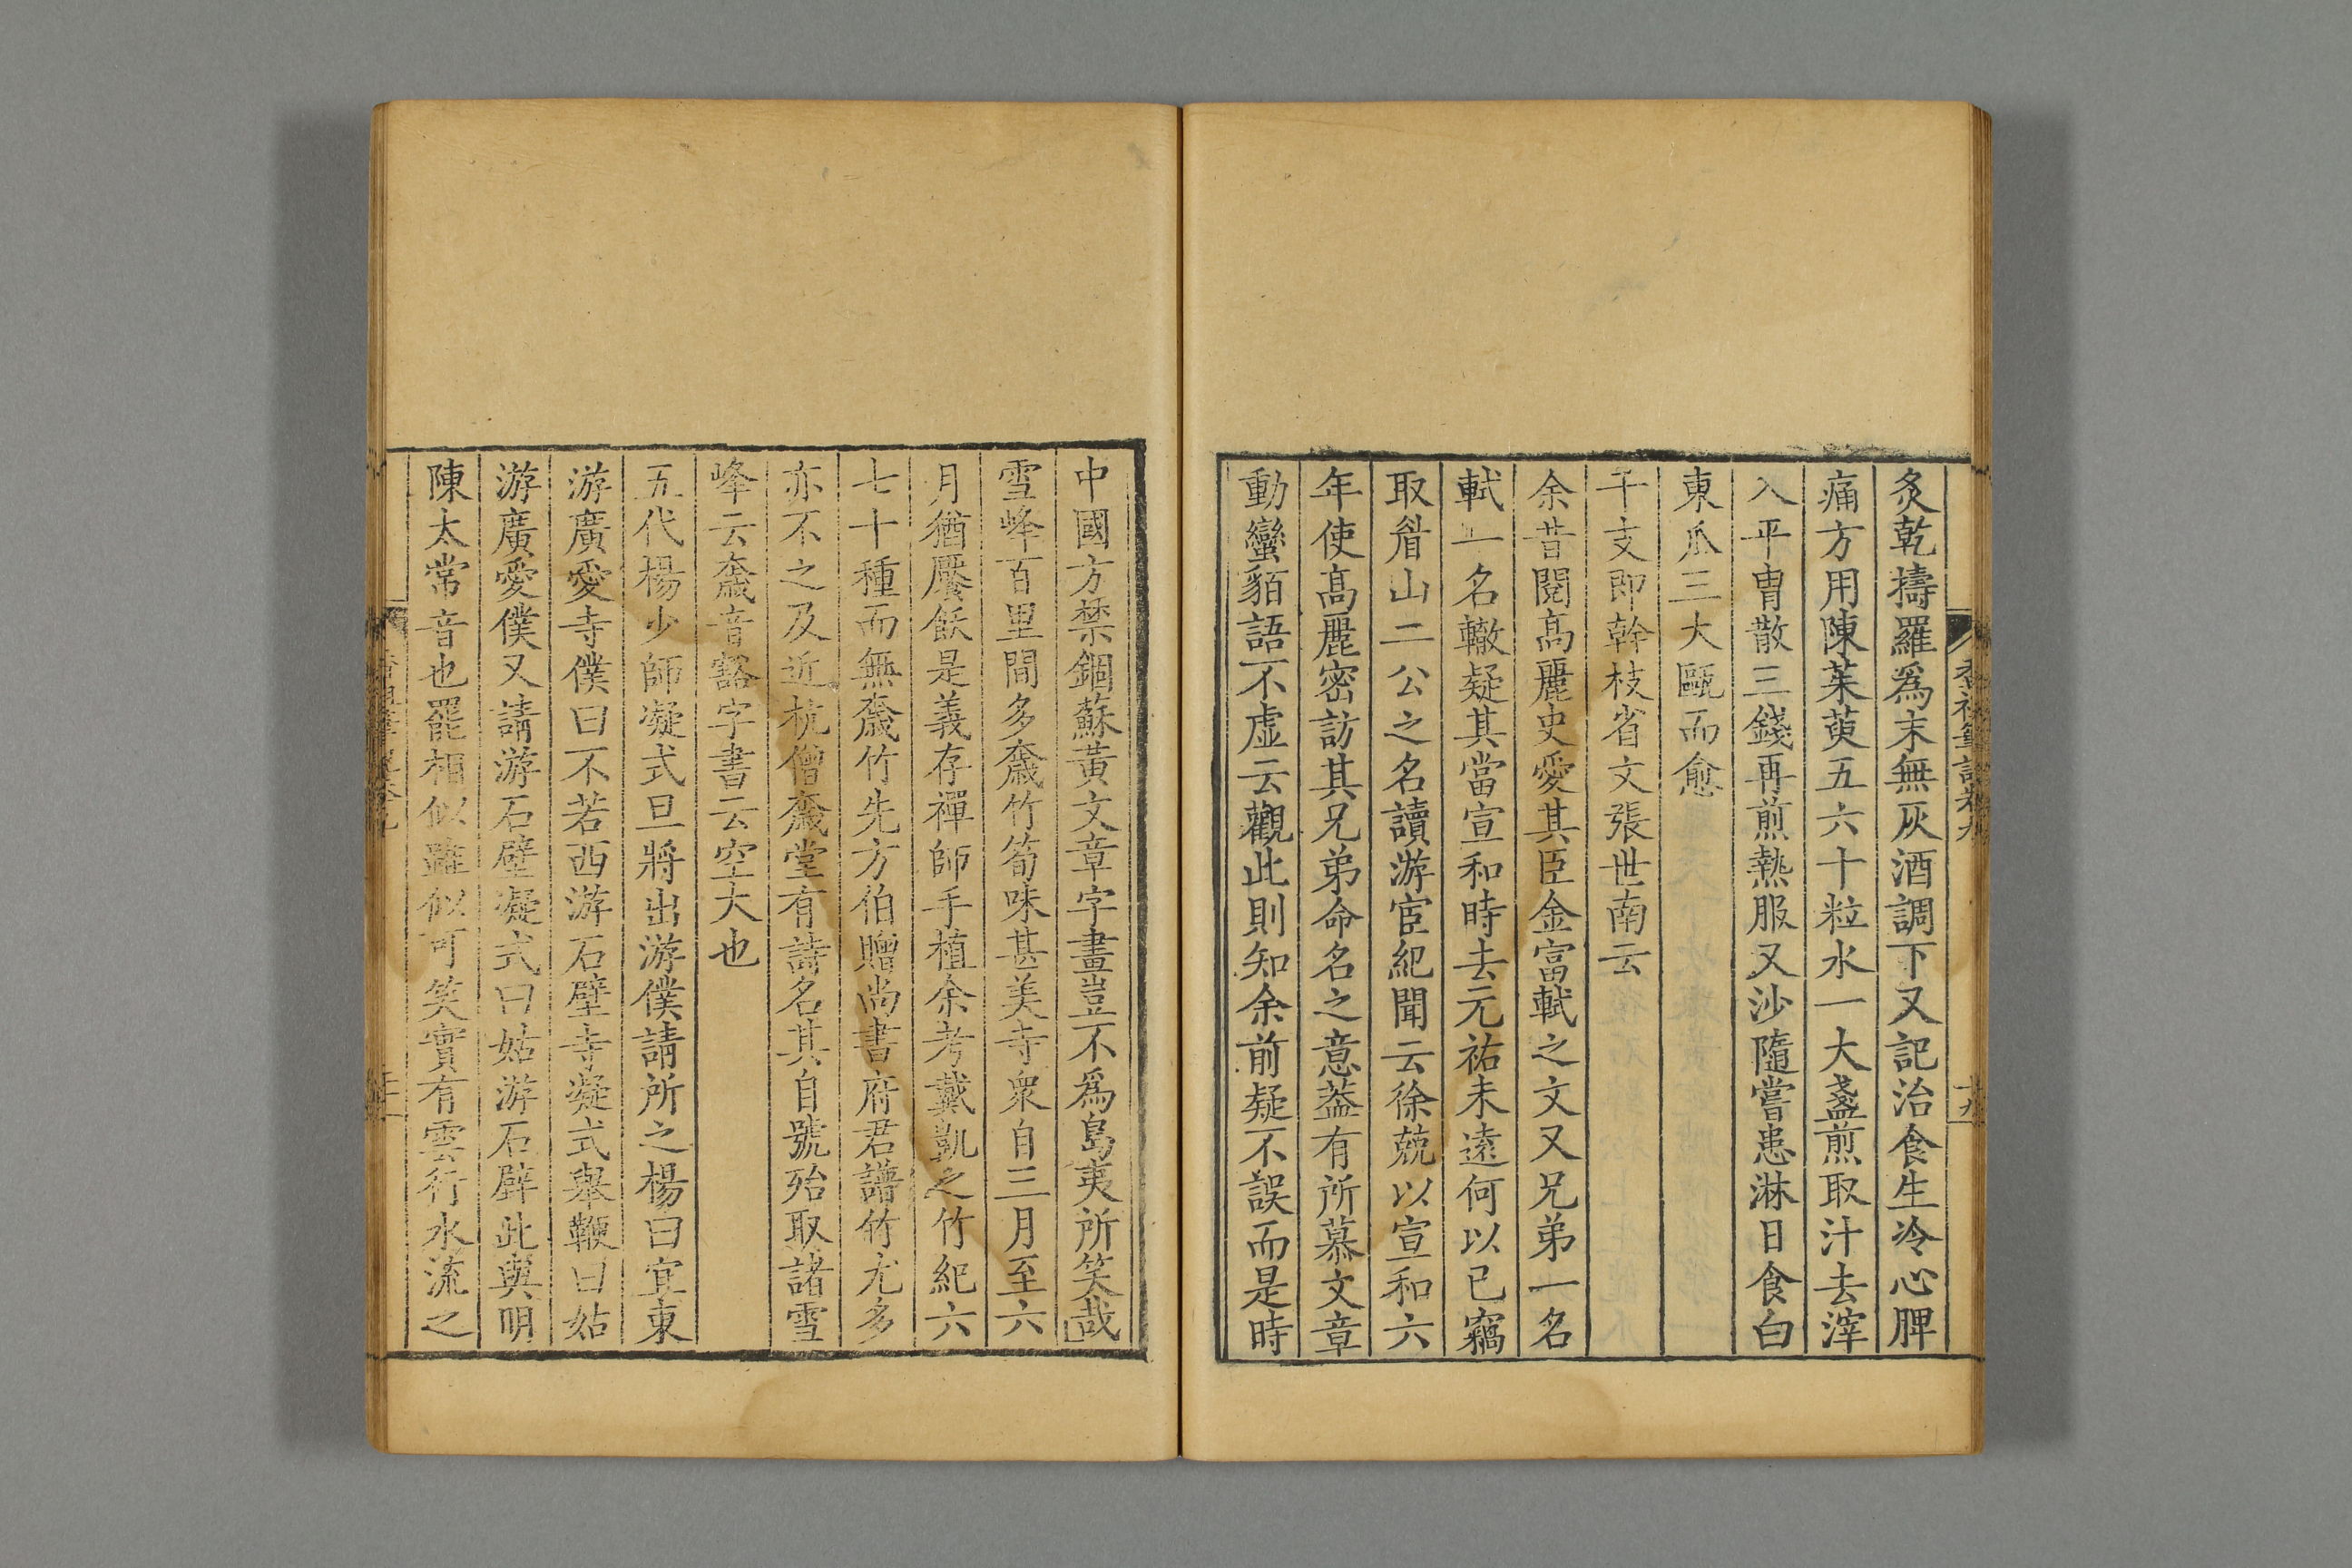 炙乾擣羅爲末無灰酒調下又記治食生冷心脾
痛方用陳茱萸五六十粒水一大盞煎取汁去滓
入平胃散三錢再煎熱服又沙隨嘗患淋日食白
東瓜三大甌而愈
干支即幹枝省文張世南云
余昔閱高麗史愛其臣金富軾之文又兄弟一名
軾一名轍疑其當宣和時去元祐未遠何以已竊
取眉山二公之名讀游宦紀聞云徐兢以宣和六
年使高麗密訪其兄弟命名之意蓋有所慕文章
動蠻貊語不虛云觀此則知余前疑不誤而是時
香祖筆記卷九
十九
中國方禁錮蘇黃文章字畫豈不爲島夷所笑哉
雪峰百里間多䈄竹筍味甚美寺衆自三月至六
月猶饜飫是義存禪師手植余考戴凱之竹紀六
七十種而無䈄竹先方伯贈尚書府君譜竹尤多
亦不之及近杭僧䈄堂有詩名其自號殆取諸雪
峰云䈄音豁字書云空大也
五代楊少師凝式旦將出游僕請所之楊曰宜東
游廣愛寺僕曰不若西游石壁寺凝式舉鞭曰姑
游廣愛僕又請游石壁凝式曰姑游石壁此與明
陳太常音也罷相似雖似可笑實有雲行水流之